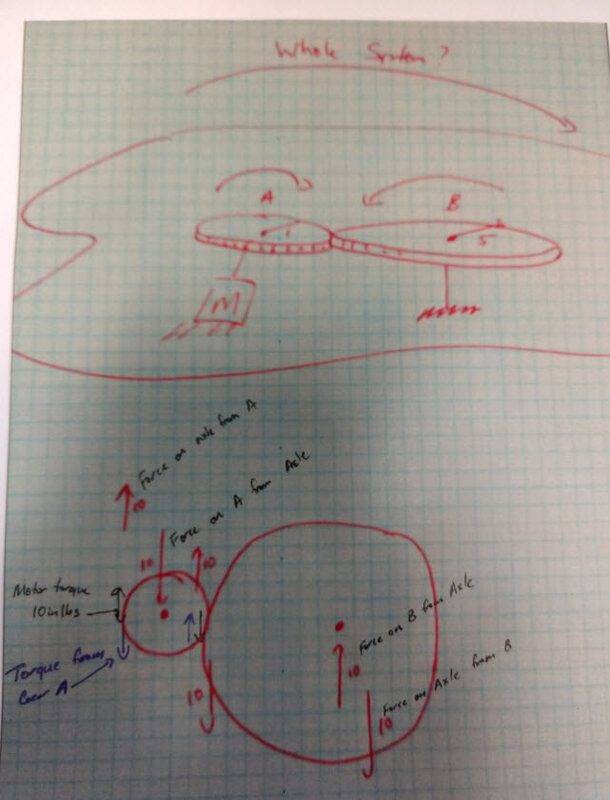 Whole System?
A
B
1
5
M
Force on axle from A
10
Force on A from Axle
10
10
Motor torque
10 in lbs
Force on B from Axle
Torque from
Gear A
10
10
Force on Axle from B
10